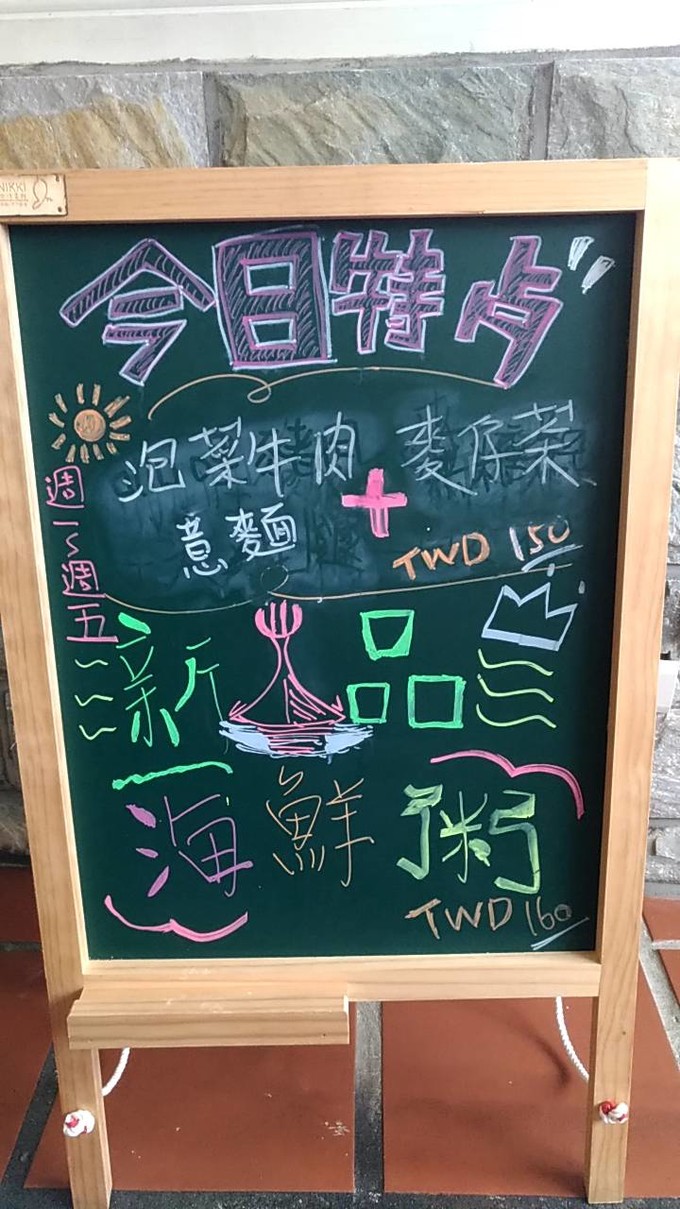 NIKKI
今日特点
泡菜牛肉 + 麥仔菜
意麵
TWD 150
週一~週五
新品
海鮮粥
TWD 160